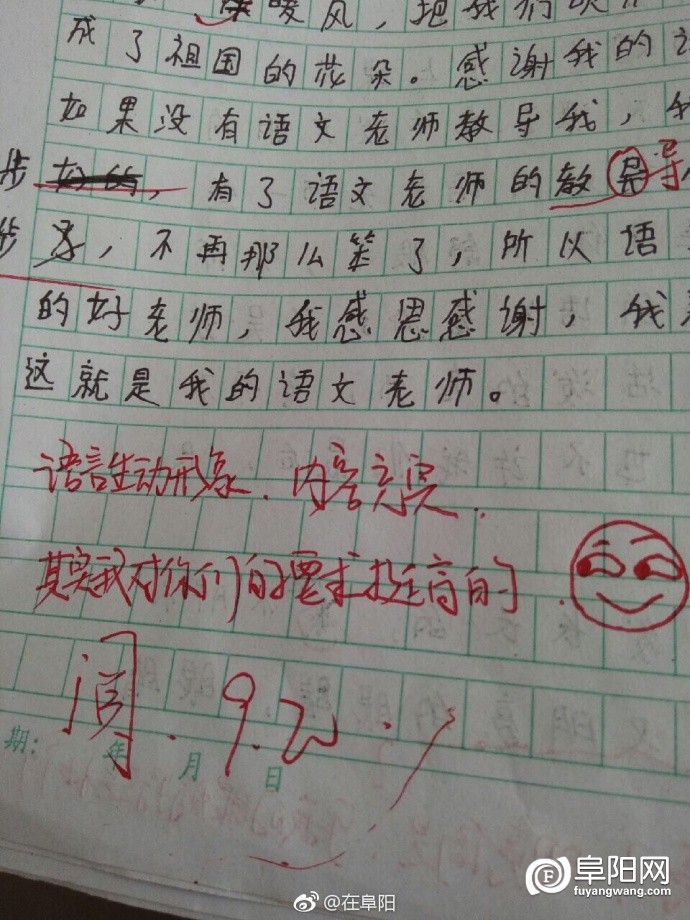 暖风，把我们吹
成了祖国的花朵。感谢我的
如果没有语文老师教导我，我
步 好的，有了语文老师的教导 导
步 了，不再那么笨了，所以语
的好老师，我感恩感谢，我
这就是我的语文老师。
语言生动形象．内容充实．
其实我对你们的要求挺高的．
阅．9.20．
期： 年 月 日
@在阜阳
阜阳网
fuyangwang.com